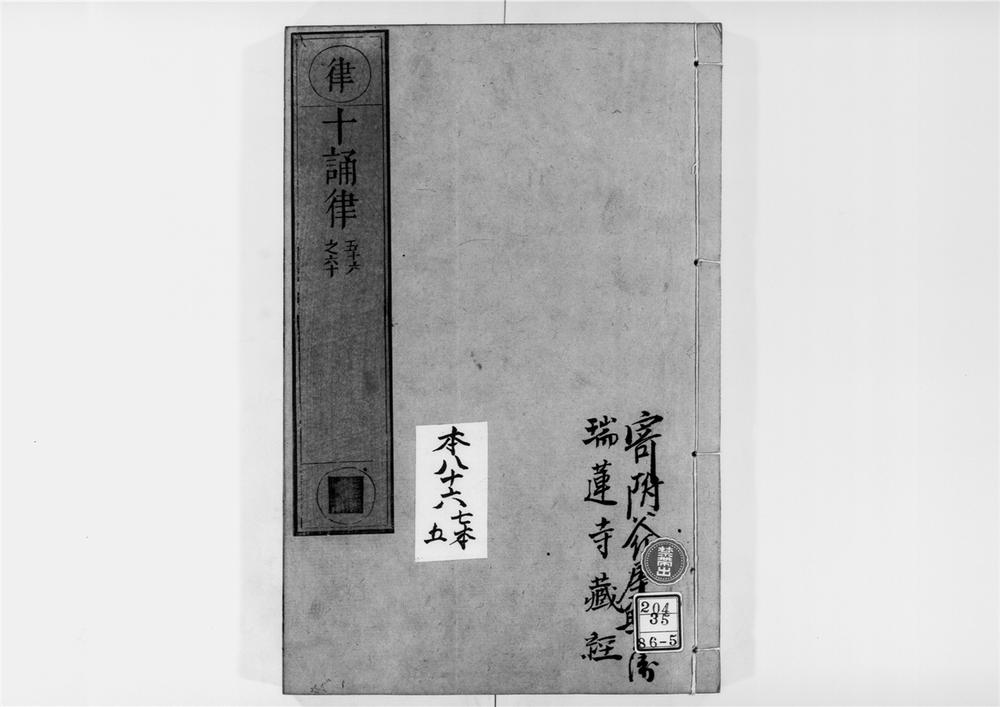 律
十誦律
五十六
之六十
本八十六
七本
五
寄附
瑞蓮寺藏經
禁帶出
204
35
86-5